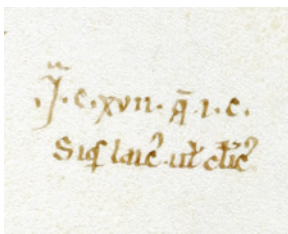 .J. c. xvii. q̄. i. c.
Siqͥs laicꝰ ul̕ cl̕icꝰ